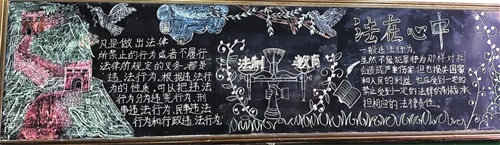 凡是做出法律
所禁止的行为或者不履行
法律所规定的义务，都是
违法行为。根据违法行为
的性质，可以把违法
行为分为违宪行为、刑
事违法行为、民事违法
行为和行政违法行为。
法制 教育
法在心中
一般违法行为，
虽然不像犯罪行为那样对社
会造成严重伤害，但也损失国家
和人民的利益，也应受到一定的
禁止受到一定的法律的制裁承
担相应的法律责任。